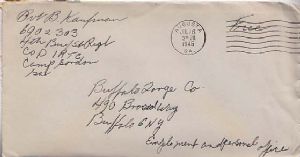 Pvt B Kaufman
6902303
4th Bn 1st Regt
Co D IRTC
Camp Gordon
Ga
AUGUSTA
1945
GA.
Free
Buffalo Forge Co
490 Broadway
Buffalo 6 NY
Employment and personal office